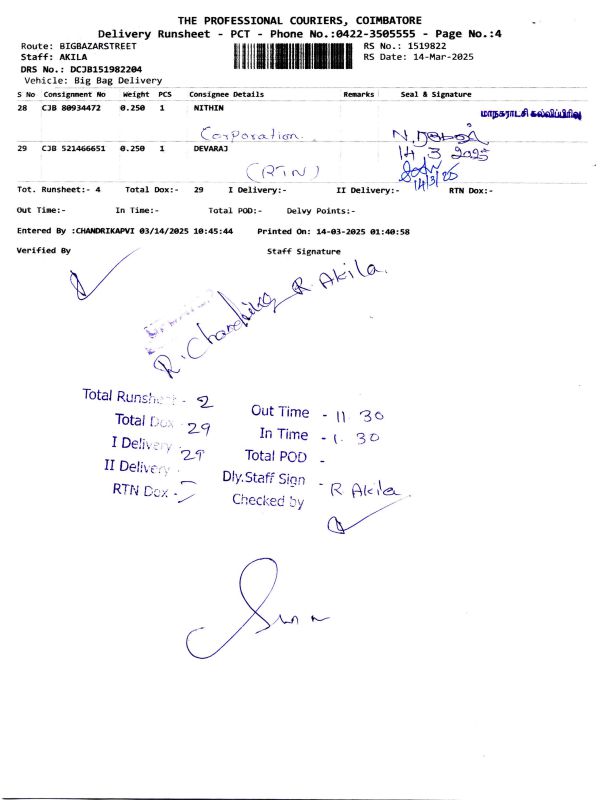 THE PROFESSIONAL COURIERS, COIMBATORE
Delivery Runsheet - PCT - Phone No.:0422-3505555 - Page No.:4
Route: BIGBAZARSTREET RS No.: 1519822
Staff: AKILA RS Date: 14-Mar-2025
DRS No.: DCJB151982204
Vehicle: Big Bag Delivery
S No Consignment No Weight PCS Consignee Details Remarks Seal & Signature
28 CJB 80934472 0.250 1 NITHIN
மாநகராட்சி கல்விப்பிரிவு
Corporation
29 CJB 521466651 0.250 1 DEVARAJ 14 3 2025
(RTN)
14/3/25
Tot. Runsheet:- 4 Total Dox:- 29 I Delivery:- II Delivery:- RTN Dox:-
Out Time:- In Time:- Total POD:- Delvy Points:-
Entered By :CHANDRIKAPVI 03/14/2025 10:45:44 Printed On: 14-03-2025 01:40:58
Verified By Staff Signature
R. Akila.
R. Chandrika
Total Runsheet - 2 Out Time - 11 30
Total Dox - 29 In Time - 1. 30
I Delivery - 29 Total POD -
II Delivery - Dly.Staff Sign - R Akila.
RTN Dox - Checked by